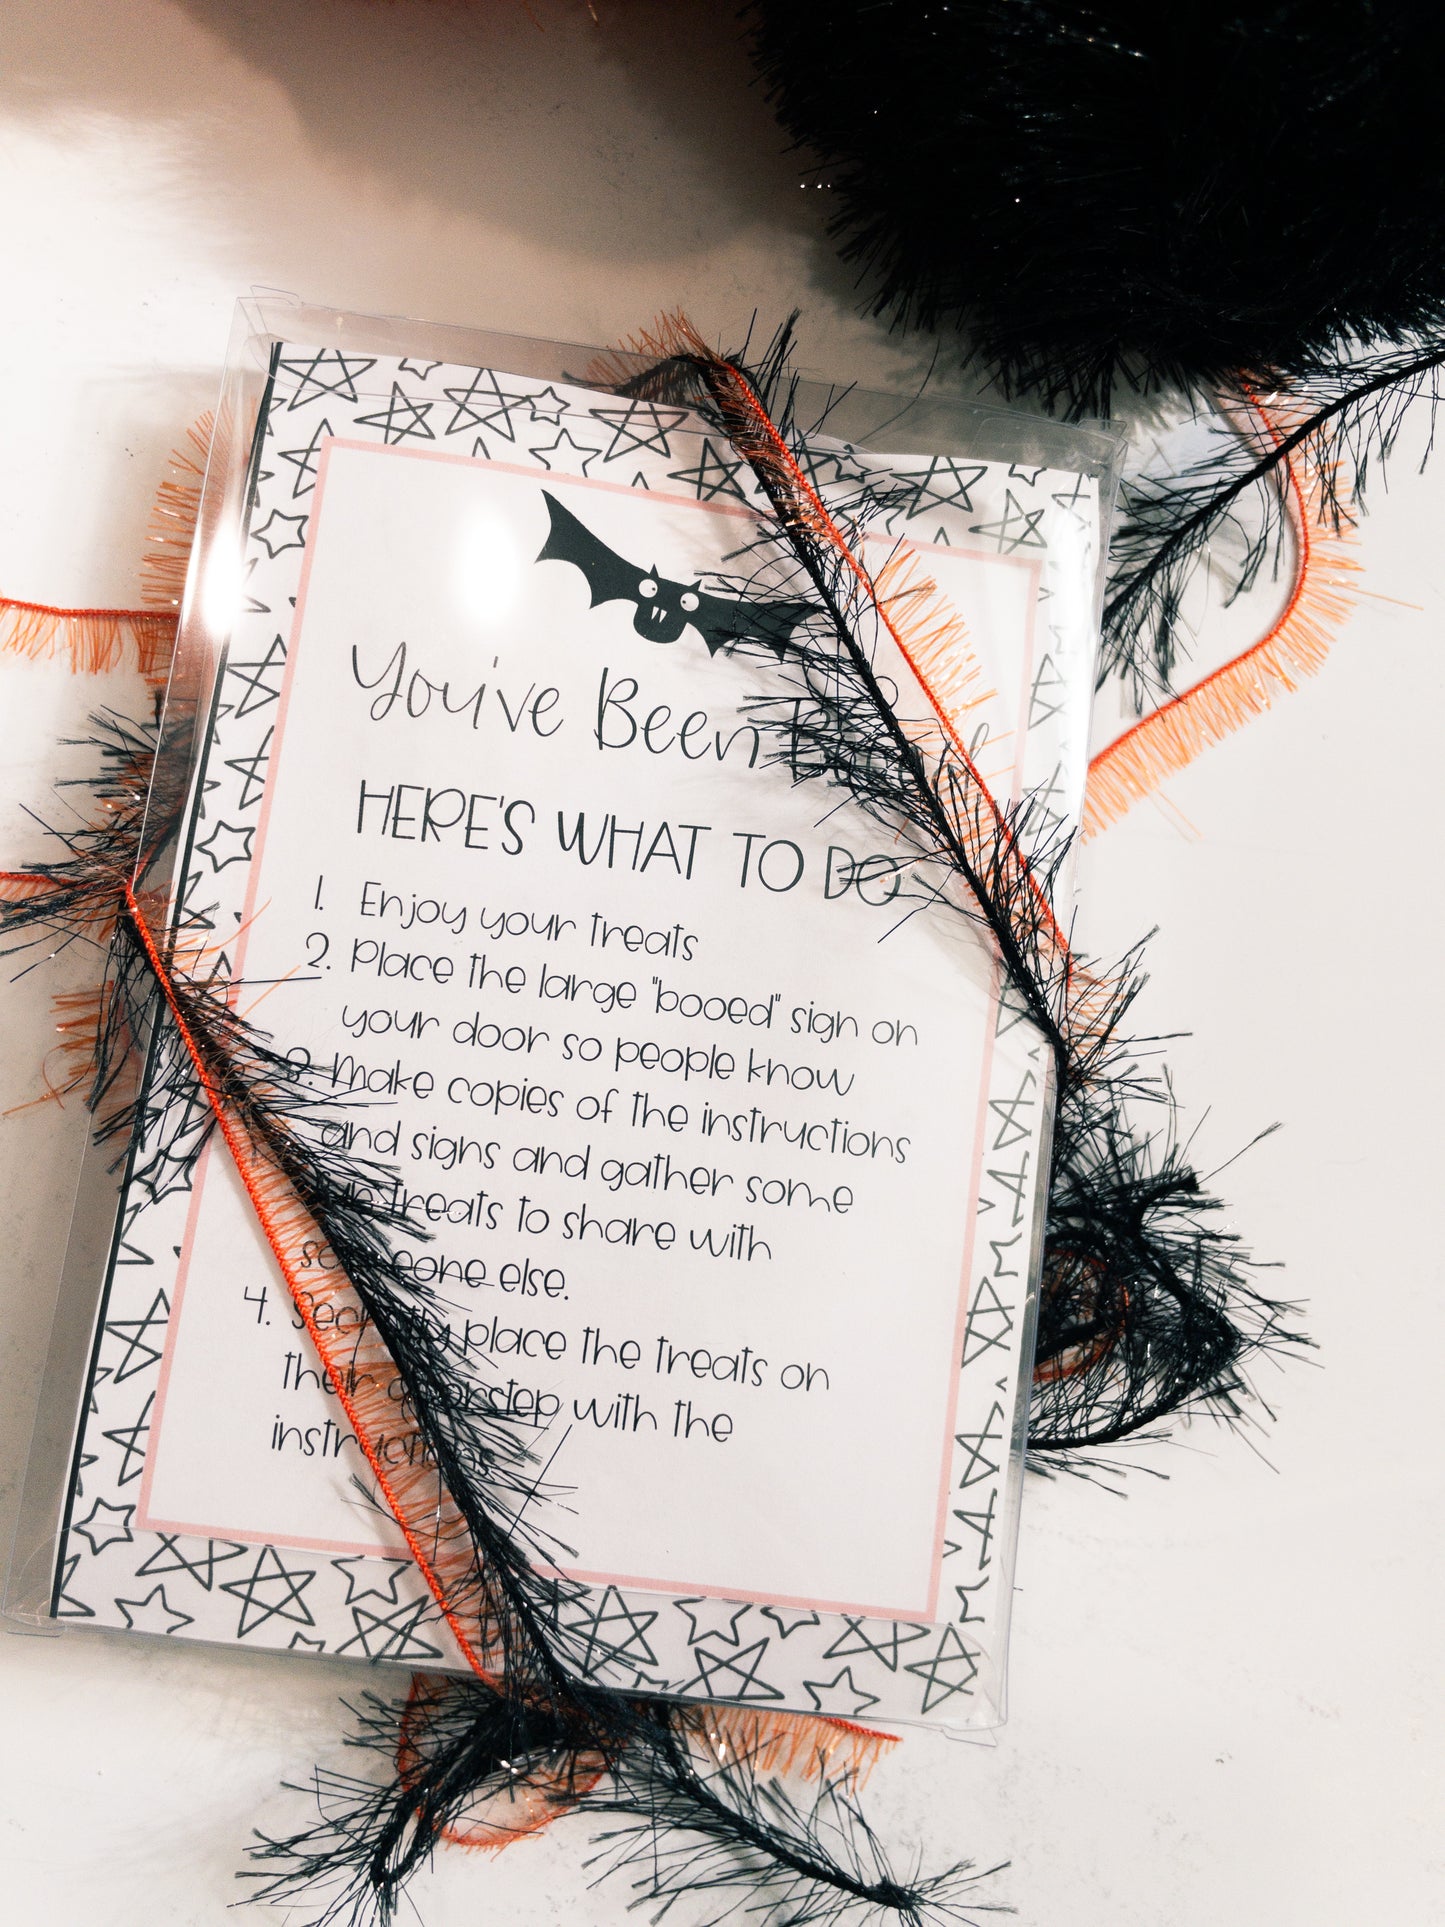 You've Been
HERE'S WHAT TO DO
1. Enjoy your treats
2. Place the large "booed" sign on
your door so people know
3. Make copies of the instructions
and signs and gather some
treats to share with
someone else.
4. Secretly place the treats on
their doorstep with the
instructions.